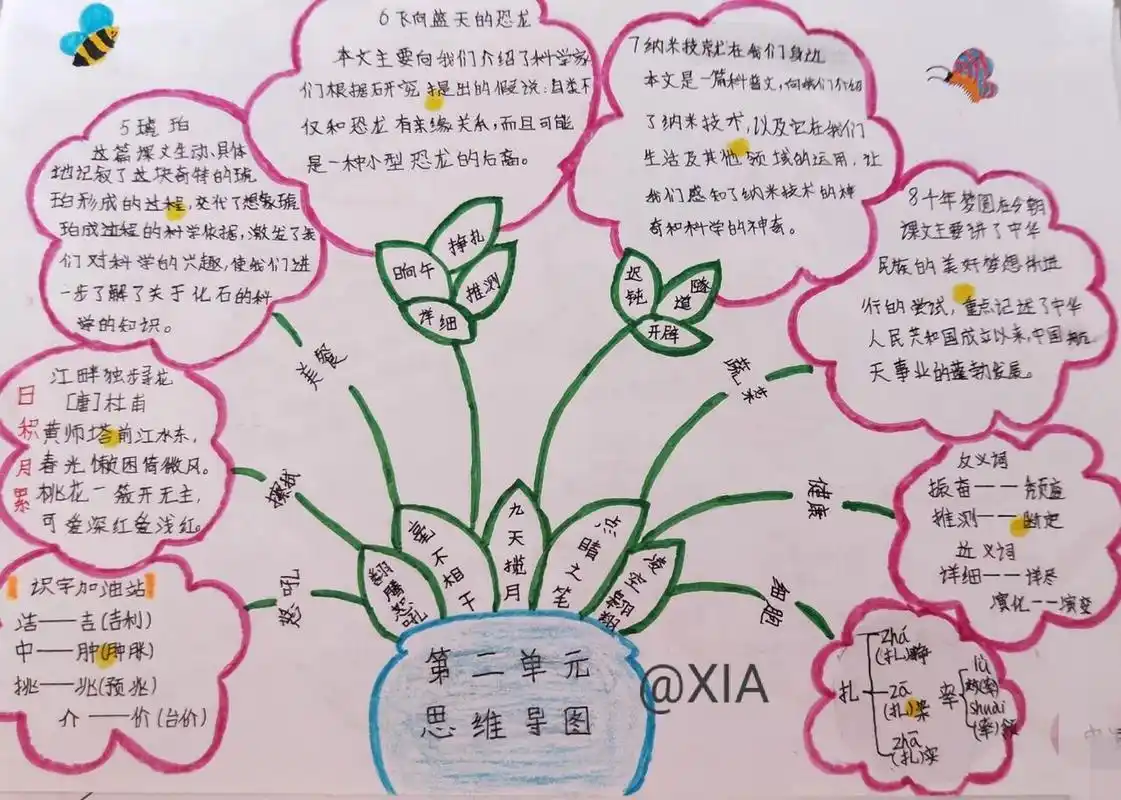 6飞向蓝天的恐龙
本文主要向我们介绍了科学家
们根据研究提出的假说:鸟类不
仅和恐龙有亲缘关系,而且可能
是一种小型恐龙的后裔。
7纳米技术就在我们身边
本文是一篇科普文,向我们介绍
了纳米技术,以及它在我们
生活及其他领域的运用,让
我们感知了纳米技术的神
奇和科学的神奇。
5琥珀
这篇课文生动、具体
地记叙了这块奇特的琥
珀形成的过程,交代了想象琥
珀成过程的科学依据,激发了我
们对科学的兴趣,使我们进
一步了解了关于化石的科
学的知识。
8千年梦圆在今朝
课文主要讲了中华
民族的美好梦想所进
行的尝试,重点记述了中华
人民共和国成立以来,中国航
天事业的蓬勃发展。
日积月累
江畔独步寻花
[唐]杜甫
黄师塔前江水东,
春光懒困倚微风。
桃花一簇开无主,
可爱深红爱浅红。
识字加油站
洁——吉(吉利)
中——肿(肿胀)
挑——兆(预兆)
介——价(台价)
反义词
振奋——颓
推测——断定
近义词
详细——详尽
演化——演变
扎
zhá
(扎)挣
zā
(扎)染
zhā
(扎)实
率
lǜ
效(率)
shuài
(率)领
晌午
挣扎
推测
详细
迟钝
隧道
开辟
美餐
蔬菜
健康
细胞
怒吼
翻腾怒吼
毫不相干
九天揽月
点睛之笔
凌空翱翔
第二单元
思维导图
@XIA